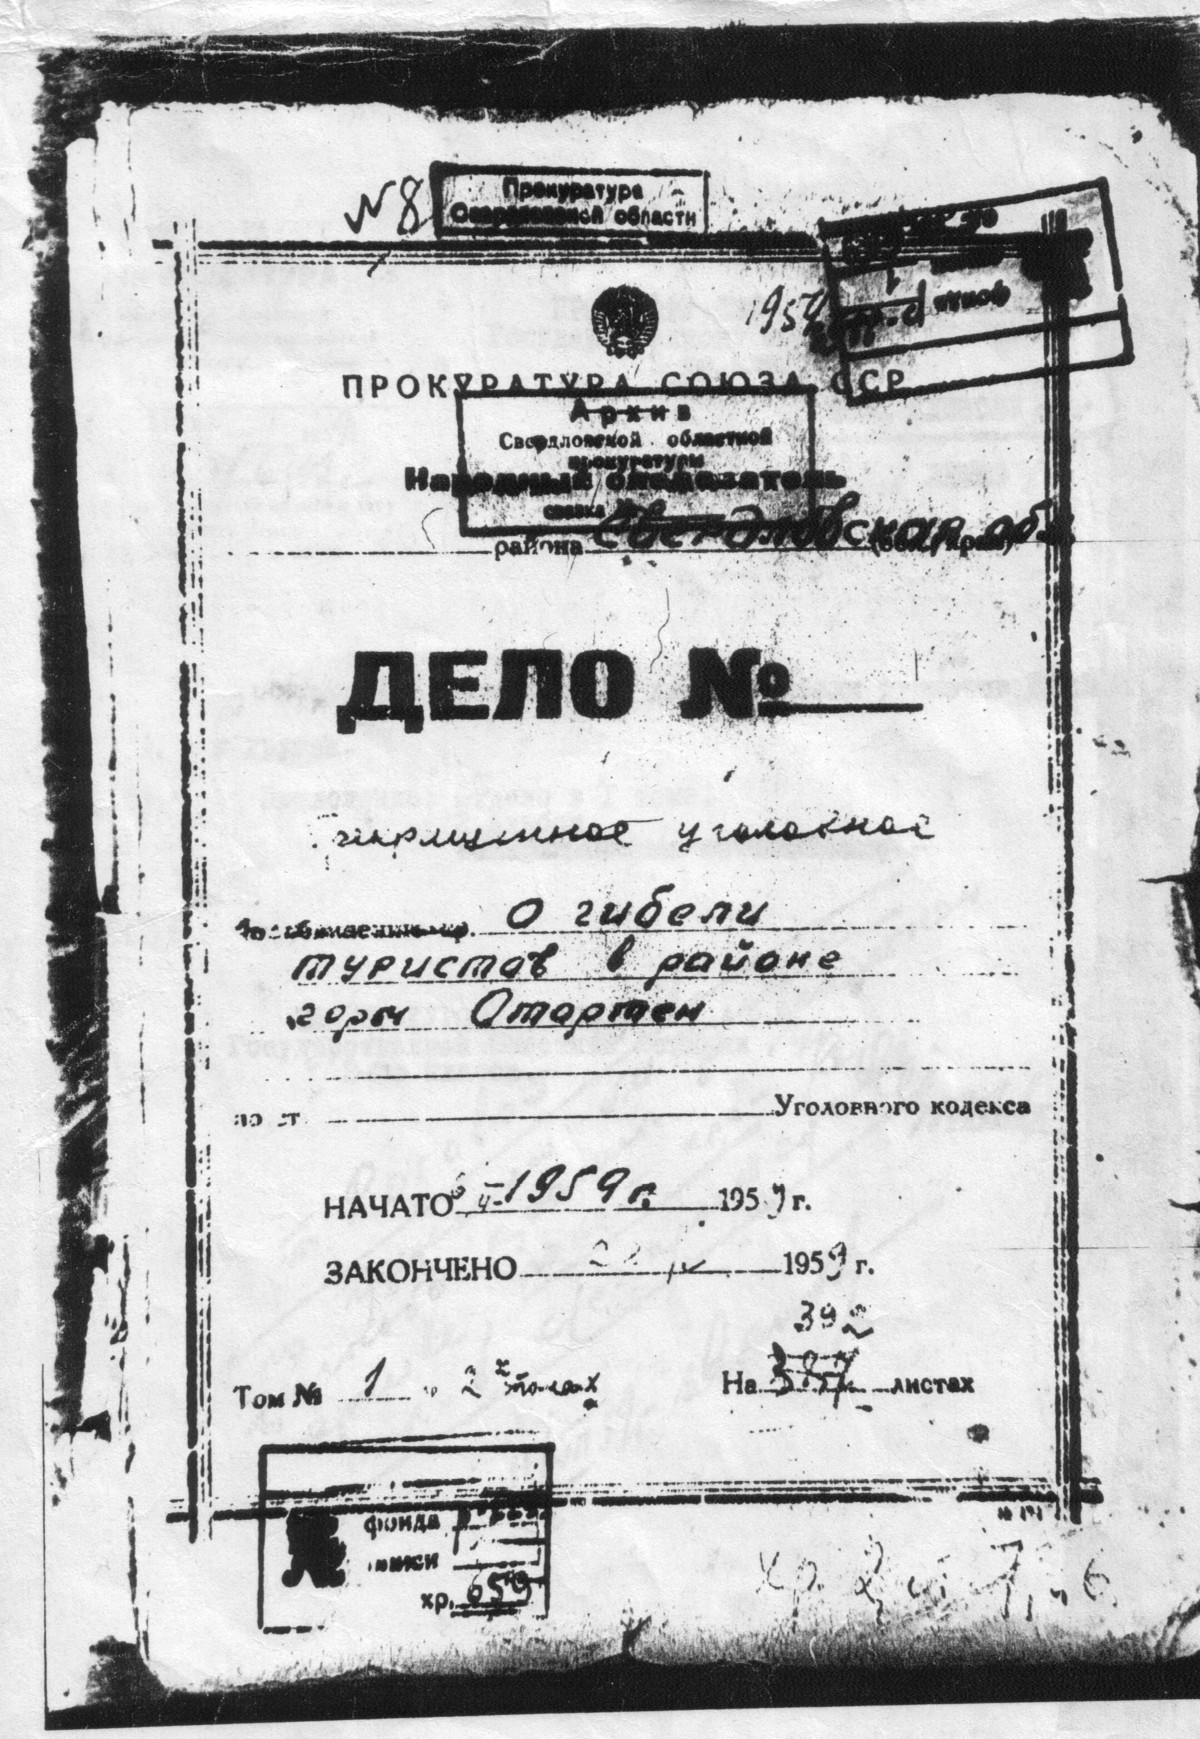 № 8
Прокуратура
Свердловской области
ПРОКУРАТУРА СОЮЗА ССР
Архив
Свердловской областной
прокуратуры
Народный следователь
района Свердловская обл.
ДЕЛО №
уголовное
О гибели
туристов в районе
горы Отортен
по ст Уголовного кодекса
НАЧАТО 6 1959 г. 1959 г.
ЗАКОНЧЕНО 1959 г.
392
Том № 1 2х томах На 387 листах
фонда
описи
хр. 659
хр. 2